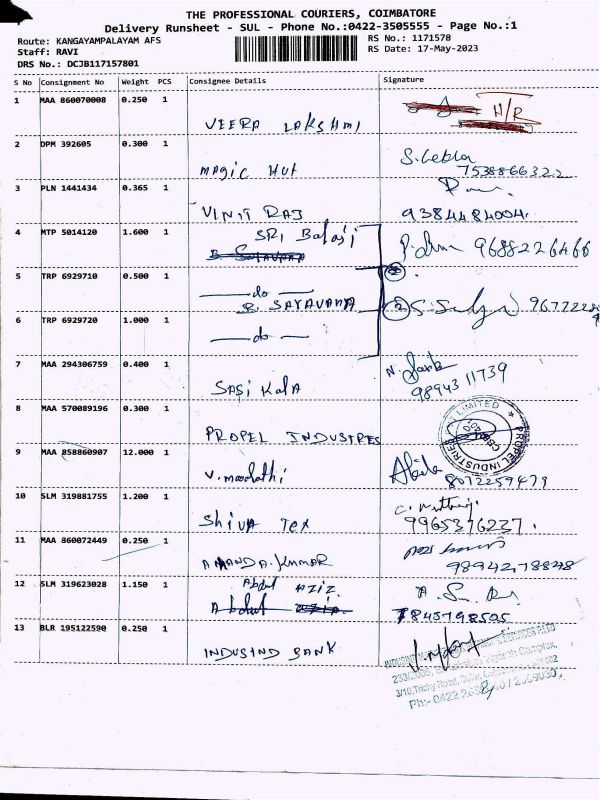 THE PROFESSIONAL COURIERS, COIMBATORE
Delivery Runsheet - SUL - Phone No.:0422-3505555 - Page No.:1
Route: KANGAYAMPALAYAM AFS
RS No.: 1171578
Staff: RAVI
RS Date: 17-May-2023
DRS No.: DCJB117157801
S No Consignment No Weight PCS Consignee Details Signature
1 MAA 860070008 0.250 1
VEERA LAKSHMI H/R
2 DPM 392605 0.300 1
MAGIC HUT 7538866322
3 PLN 1441434 0.365 1
VINIT RAJ 9384484004.
4 MTP 5014120 1.600 1
SRI Balaji 9688226466
5 TRP 6929710 0.500 1
do
B. SARAVANA
6 TRP 6929720 1.000 1
do
7 MAA 294306759 0.400 1
SASI KALA 9894311739
8 MAA 570089196 0.300 1
PROPEL INDUSTRIES
LIMITED
PROPEL INDUSTRIES
9 MAA 858860907 12.000 1
8072259479
10 SLM 319881755 1.200 1
SHIVA TEX 9965376237.
11 MAA 860072449 0.250 1
ANANDA.KUMAR 9894278848
12 SLM 319623028 1.150 1
Abdul AZIZ.
Abdul
7845798505
13 BLR 195122590 0.250 1
INDUSIND BANK